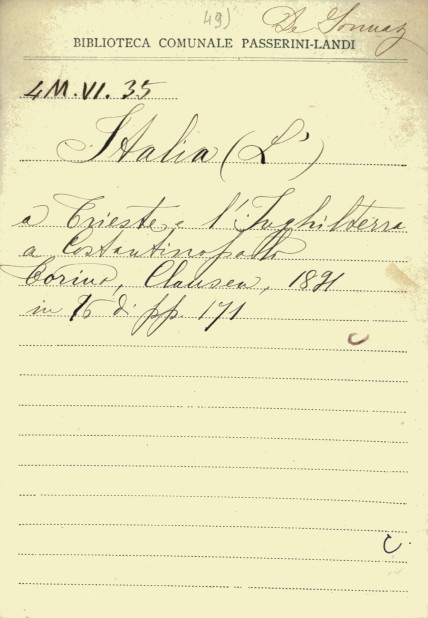 49)
De Sonnaz
BIBLIOTECA COMUNALE PASSERINI-LANDI
4M.VI.35
Italia (L')
a Trieste e l'Inghilterra
a Costantinopoli
Torino, Clausen, 1891
in 16 di pp. 171
C
C.